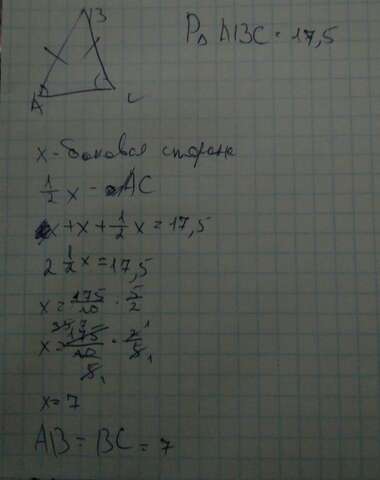 B
P△ ABC = 17,5
A C
x - боковая сторона
1/2 x - AC
x + x + 1/2 x = 17,5
2 1/2 x = 17,5
x = 175/10 : 5/2
x = 175/10 · 2/5
x = 7
AB = BC = 7